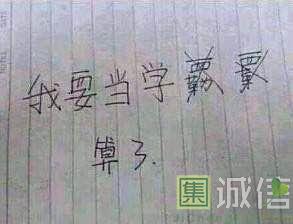 我要当学
算了.
集 诚信